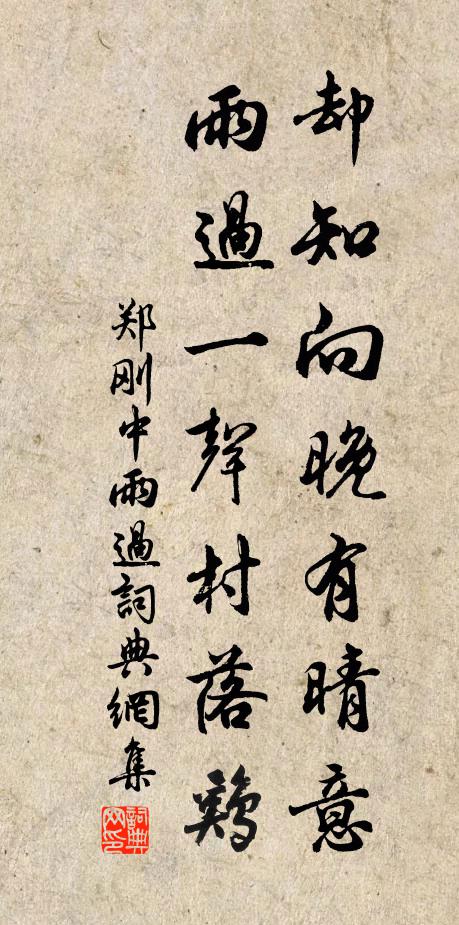 却知向晚有晴意
雨過一聲村落鷄
郑刚中雨過詞典網集
詞典網印